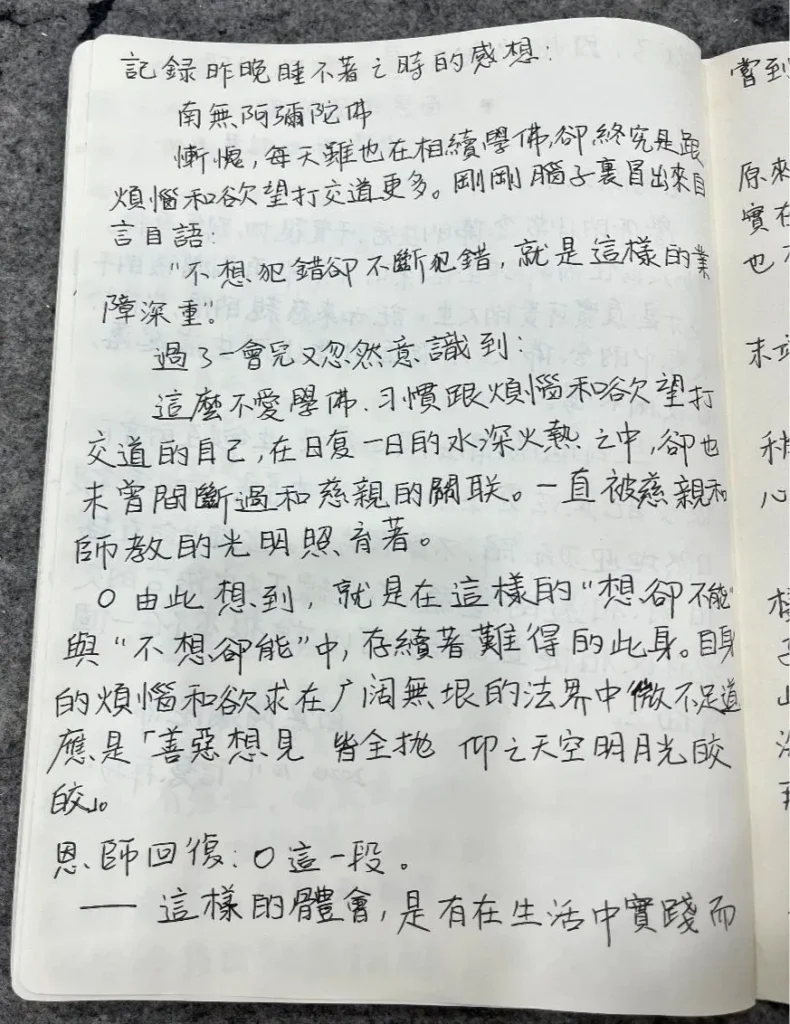 記録昨晚睡不著之時的感想:
南無阿彌陀佛
慚愧,每天雖也在相續學佛,卻終究是跟
煩惱和欲望打交道更多。剛剛腦子裏冒出來自
言自語:
"不想犯錯卻不斷犯錯,就是這樣的業
障深重。
過了一會兒又忽然意識到:
這麼不愛學佛.习慣跟煩惱和欲望打
交道的自己,在日复一日的水深火熱之中,卻也
未曾間斷過和慈親的關联。一直被慈親和
師教的光明照育著。
O 由此想到,就是在這樣的"想卻不能"
與"不想卻能"中,存續著難得的此身。自身
的煩惱和欲求在广阔無垠的法界中微不足道
應是「善惡想見 皆全拋 仰之天空明月光皎
皎」。
恩師回復:O這一段。
—— 這樣的體會,是有在生活中實踐而
嘗到
原來
實在
也
未
心